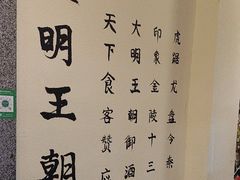 虎踞龙盘今秦
印象金陵十三
大明王朝御酒
天下食客赞应
明王朝